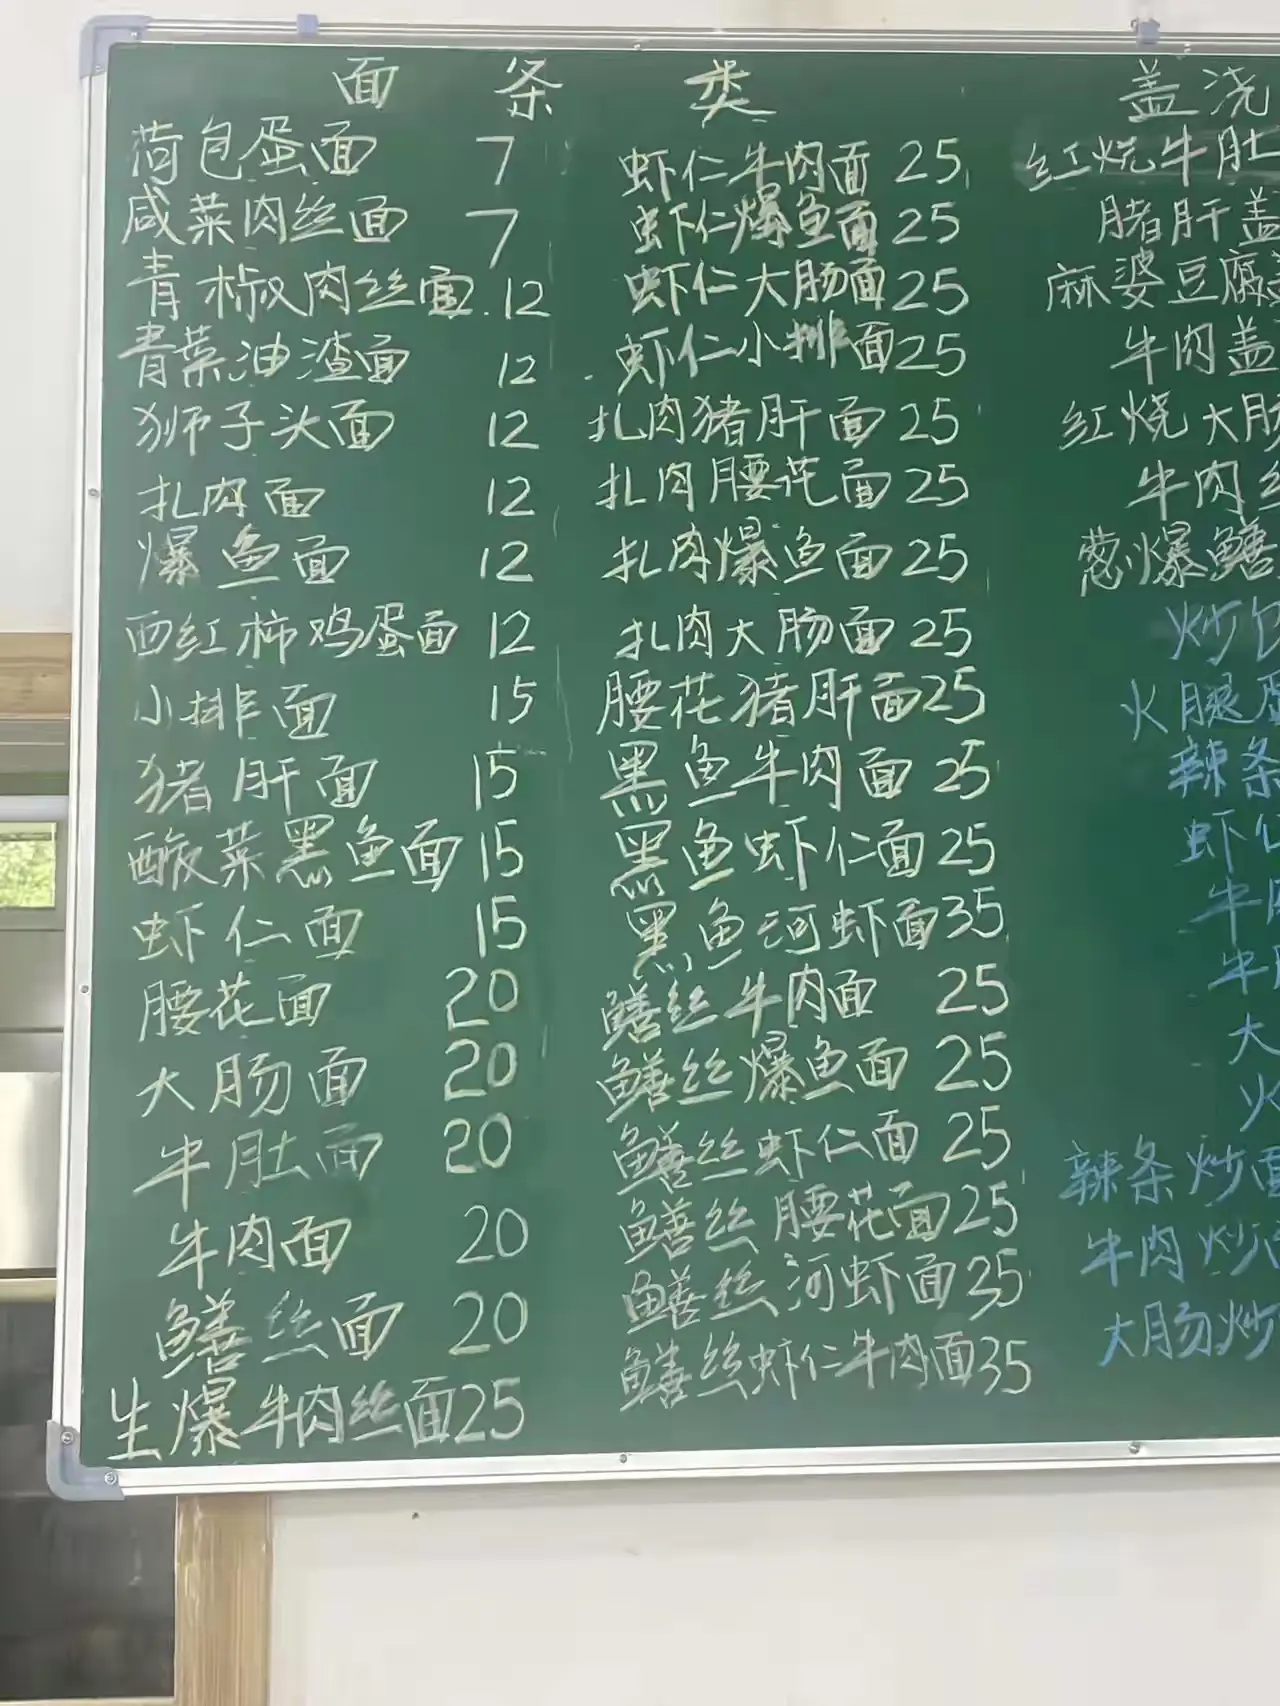 面条类
荷包蛋面 7
咸菜肉丝面 7
青椒肉丝面 12
青菜油渣面 12
狮子头面 12
扎肉面 12
爆鱼面 12
西红柿鸡蛋面 12
小排面 15
猪肝面 15
酸菜黑鱼面 15
虾仁面 15
腰花面 20
大肠面 20
牛肚面 20
牛肉面 20
鳝丝面 20
生爆牛肉丝面 25
虾仁牛肉面 25
虾仁爆鱼面 25
虾仁大肠面 25
虾仁小排面 25
扎肉猪肝面 25
扎肉腰花面 25
扎肉爆鱼面 25
扎肉大肠面 25
腰花猪肝面 25
黑鱼牛肉面 25
黑鱼虾仁面 25
黑鱼河虾面 35
鳝丝牛肉面 25
鳝丝爆鱼面 25
鳝丝虾仁面 25
鳝丝腰花面 25
鳝丝河虾面 35
鳝丝虾仁牛肉面 35
盖浇
红烧牛肚
猪肝盖
麻婆豆腐
牛肉盖
红烧大肠
牛肉丝
葱爆鳝
炒饭
火腿蛋
辣条
虾仁
牛肉
牛
大
火
辣条炒面
牛肉炒
大肠炒